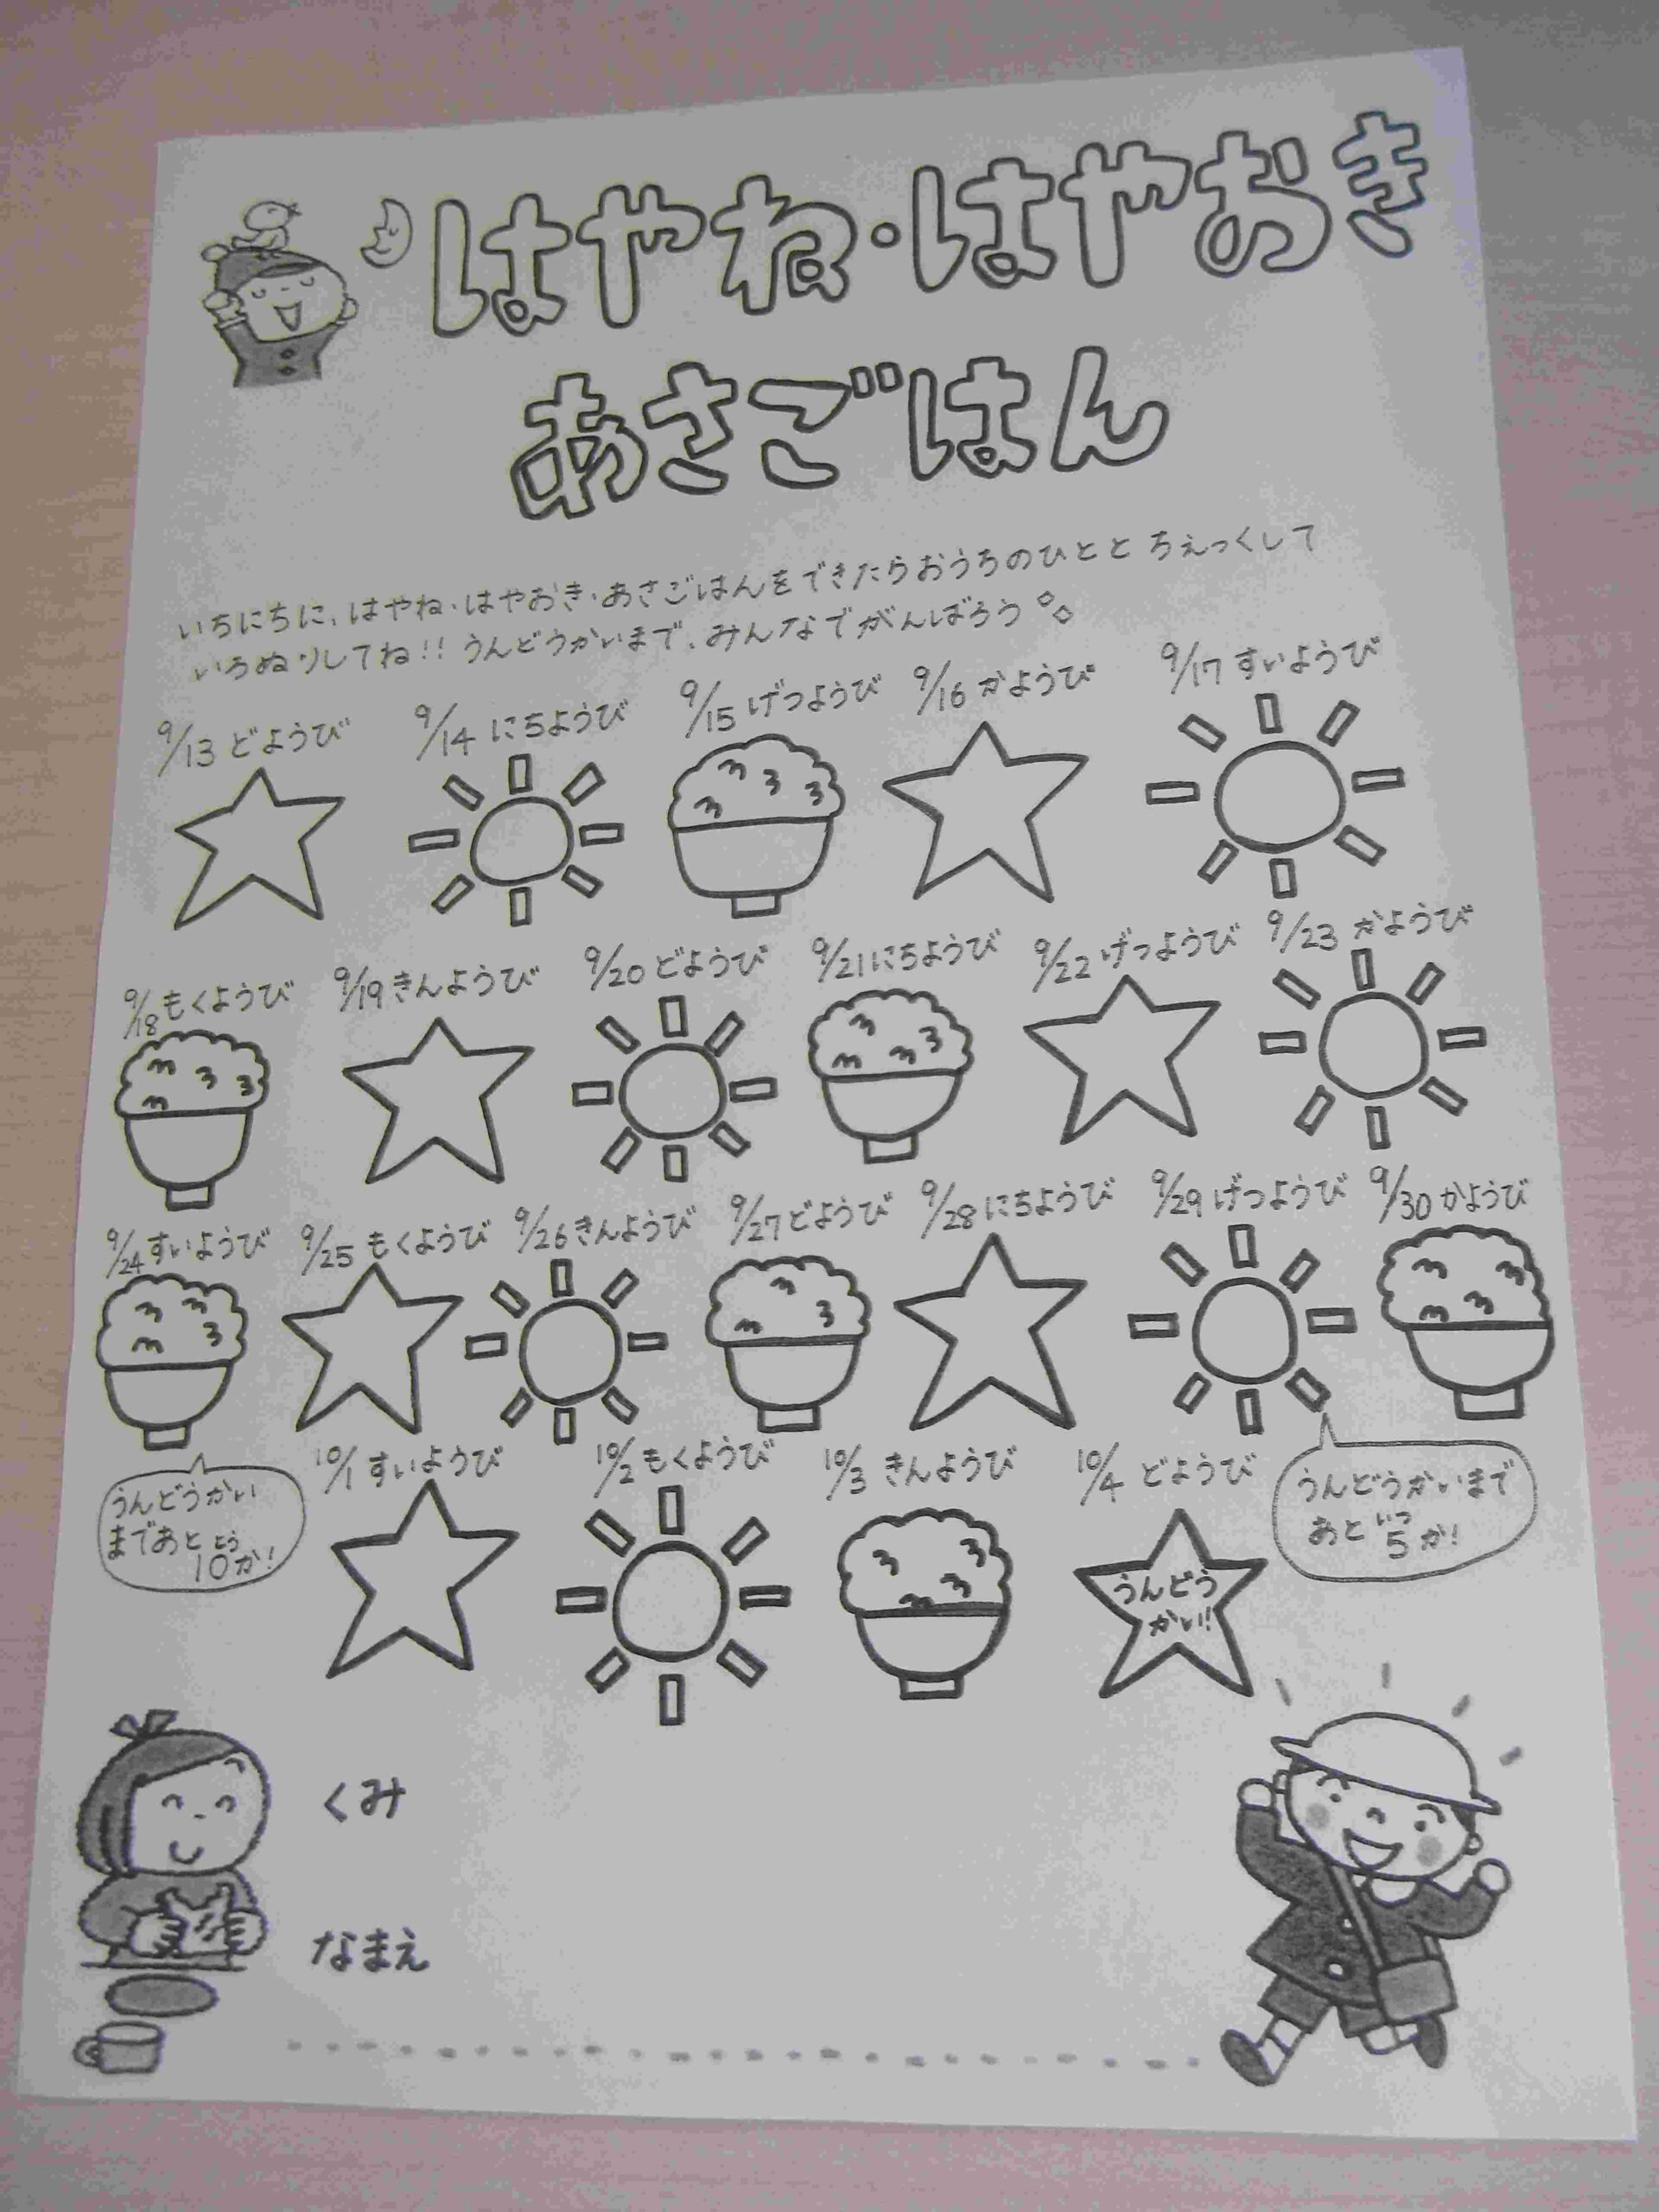 はやね・はやおき
あさごはん
いちにちに、はやね・はやおき・あさごはんをできたらおうちのひとと ちぇっくして
いろぬりしてね!! うんどうかいまで、みんなでがんばろう
9/13 どようび
9/14 にちようび
9/15 げつようび
9/16 かようび
9/17 すいようび
9/18 もくようび
9/19 きんようび
9/20 どようび
9/21 にちようび
9/22 げつようび
9/23 かようび
9/24 すいようび
9/25 もくようび
9/26 きんようび
9/27 どようび
9/28 にちようび
9/29 げつようび
9/30 かようび
うんどうかい
まであと とう
10か!
10/1 すいようび
10/2 もくようび
10/3 きんようび
10/4 どようび
うんどう
かい!!
うんどうかいまで
あと いつ
5か!
くみ
なまえ